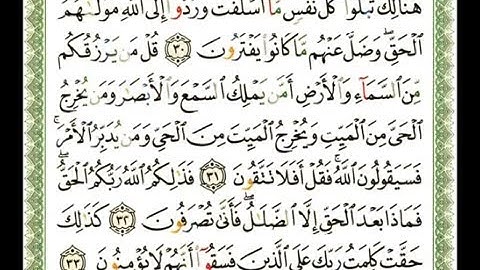 هُنَالِكَ تَبْلُوا۟ كُلُّ نَفْسٍ مَّآ أَسْلَفَتْ وَرُدُّوٓا۟ إِلَى ٱللَّهِ مَوْلَىٰهُمُ
ٱلْحَقِّ ۖ وَضَلَّ عَنْهُم مَّا كَانُوا۟ يَفْتَرُونَ ٣٠ قُلْ مَن يَرْزُقُكُم
مِّنَ ٱلسَّمَآءِ وَٱلْأَرْضِ أَمَّن يَمْلِكُ ٱلسَّمْعَ وَٱلْأَبْصَٰرَ وَمَن يُخْرِجُ
ٱلْحَىَّ مِنَ ٱلْمَيِّتِ وَيُخْرِجُ ٱلْمَيِّتَ مِنَ ٱلْحَىِّ وَمَن يُدَبِّرُ ٱلْأَمْرَ ۚ
فَسَيَقُولُونَ ٱللَّهُ ۚ فَقُلْ أَفَلَا تَتَّقُونَ ٣١ فَذَٰلِكُمُ ٱللَّهُ رَبُّكُمُ ٱلْحَقُّ ۖ
فَمَاذَا بَعْدَ ٱلْحَقِّ إِلَّا ٱلضَّلَٰلُ ۖ فَأَنَّىٰ تُصْرَفُونَ ٣٢ كَذَٰلِكَ
حَقَّتْ كَلِمَتُ رَبِّكَ عَلَى ٱلَّذِينَ فَسَقُوٓا۟ أَنَّهُمْ لَا يُؤْمِنُونَ ٣٣